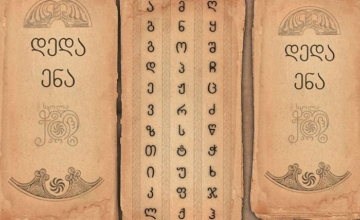 დედა
ენა
ა მ ღ
ბ ნ ყ
გ ო შ
დ პ ჩ
ე ჟ ც
ვ რ ძ
ზ ს წ
თ ტ ჭ
ი უ ხ
კ ფ ჯ
ლ ქ ჰ
დედა
ენა